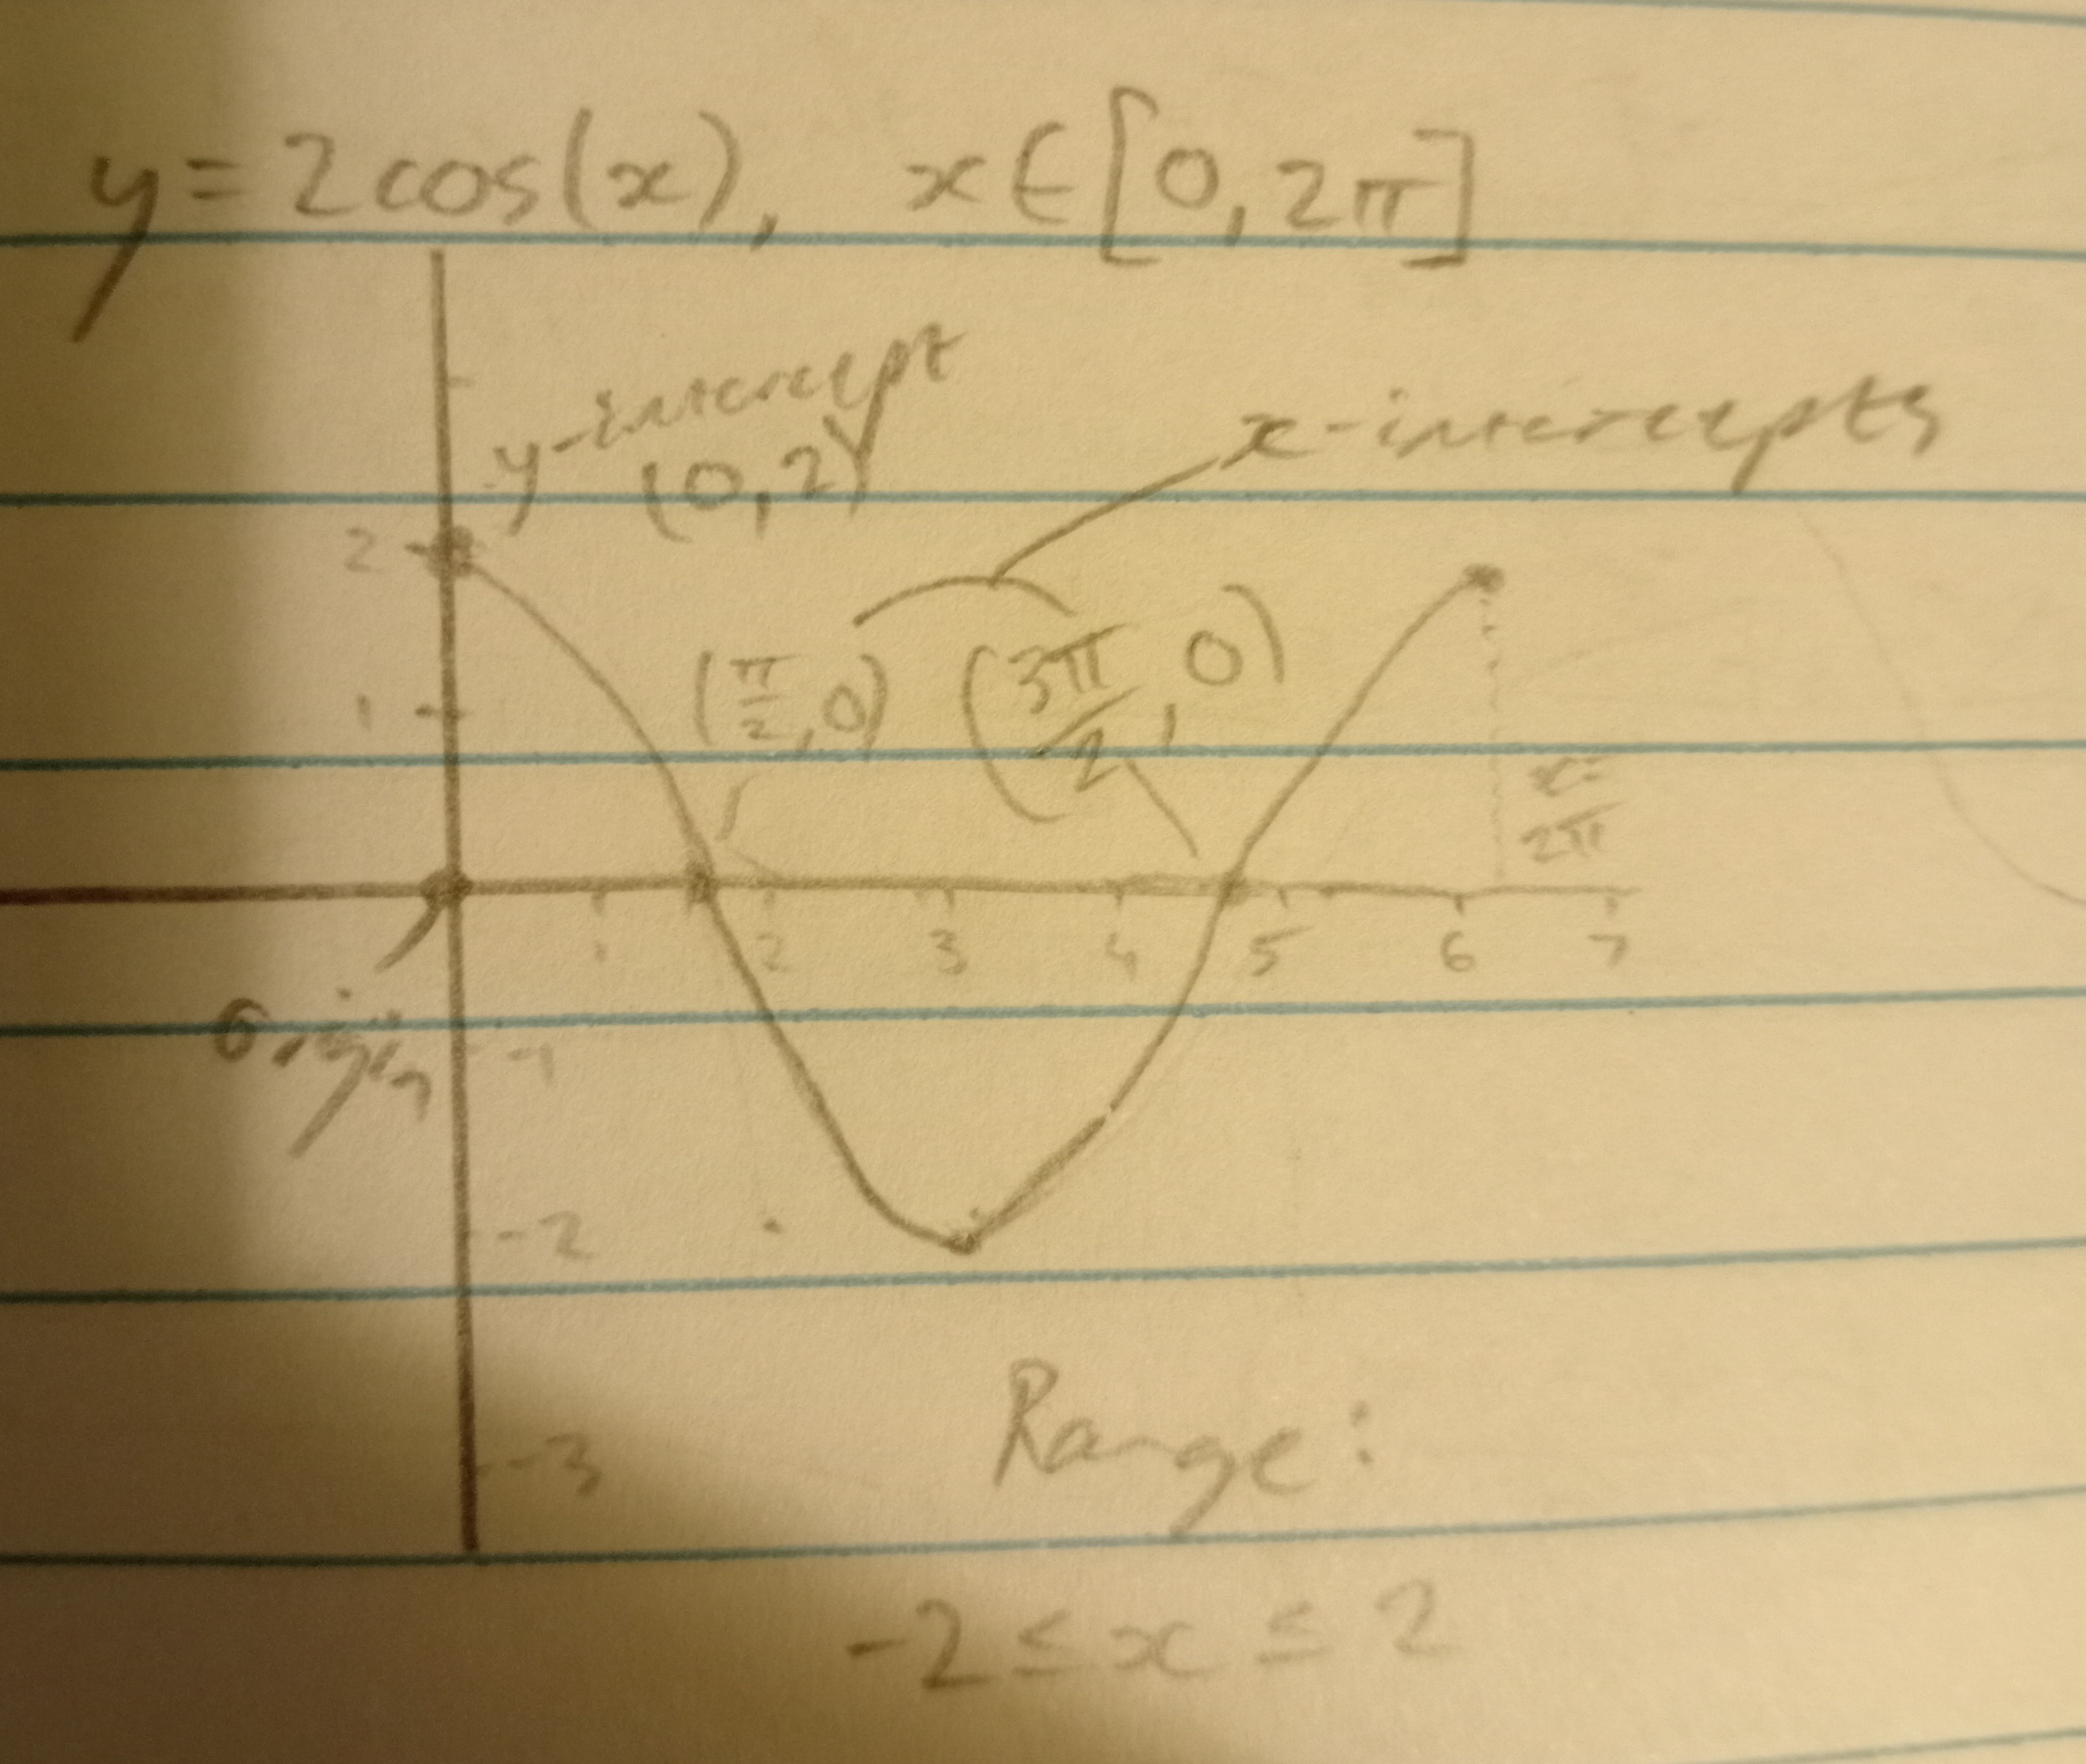 y=2cos(x), x∈[0,2π]
y-intercept
(0,2)
x-intercepts
2
(π/2,0) (3π/2,0)
1
x=
2π
1 2 3 4 5 6 7
Origin
-1
-2
-3
Range:
-2≤x≤2